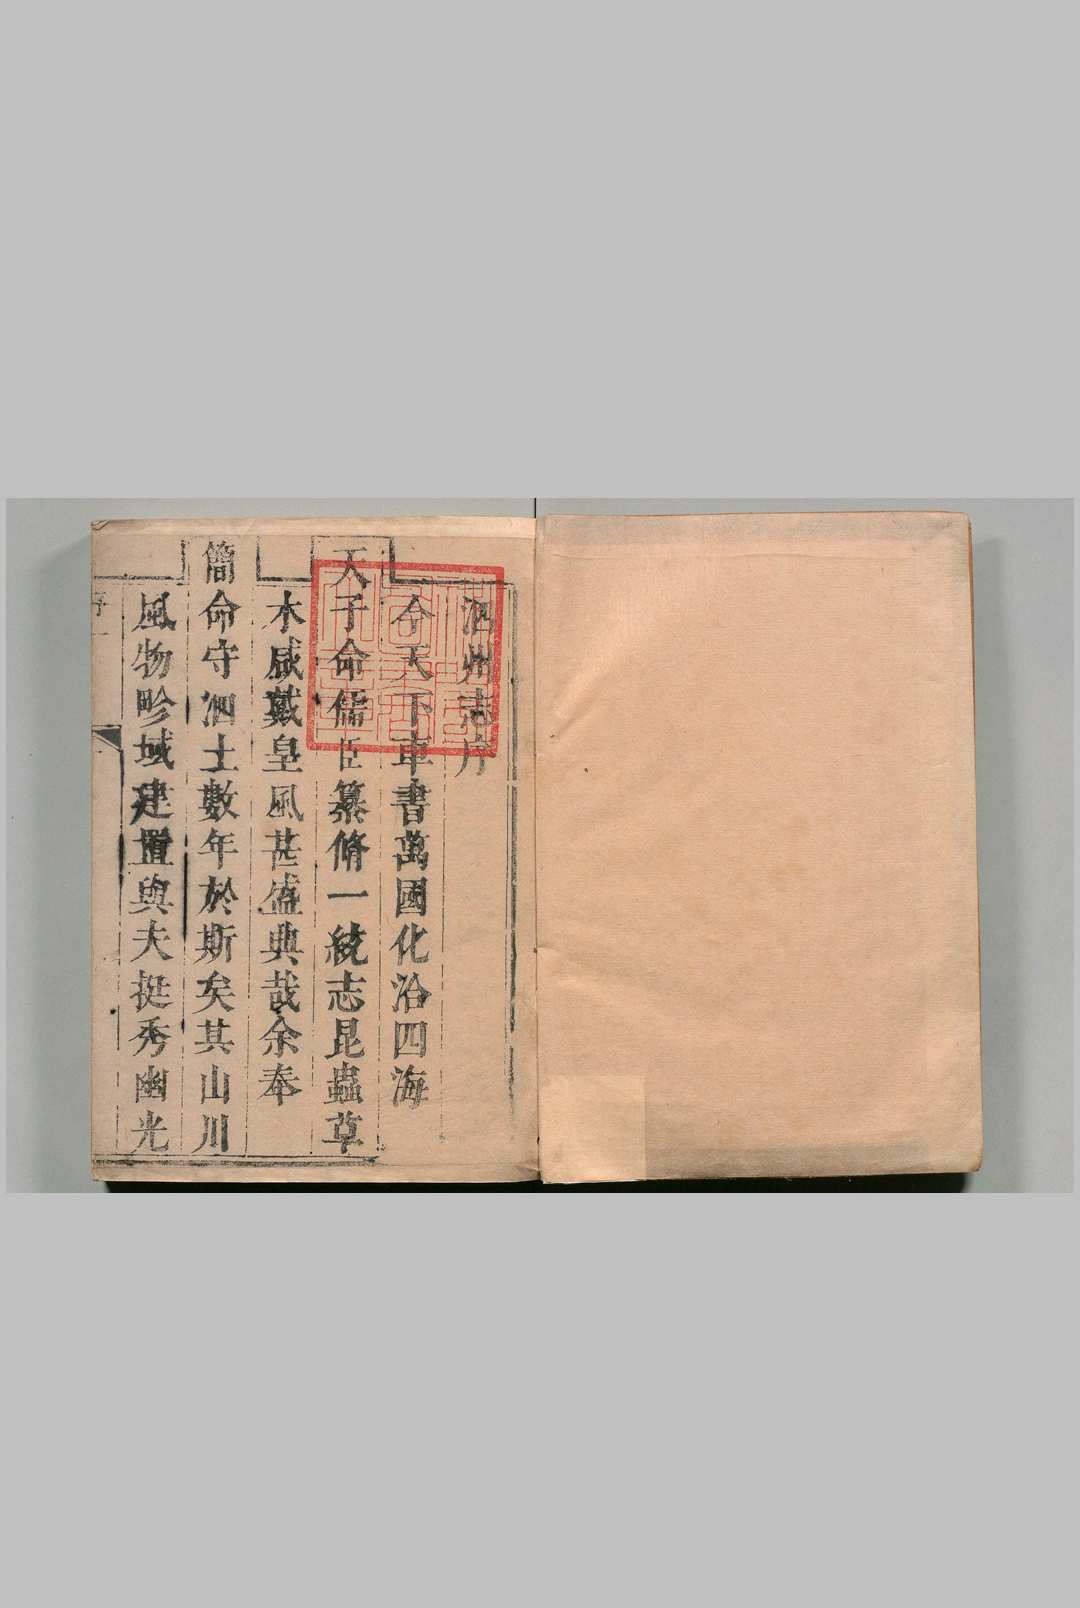 泗州志序
今天下車書萬國化治四海
天子命儒臣纂脩一統志昆蟲草
木咸戴皇風甚盛典哉余奉
簡命守泗土數年於斯矣其山川
風物畛域建置與夫挺秀幽光
序一